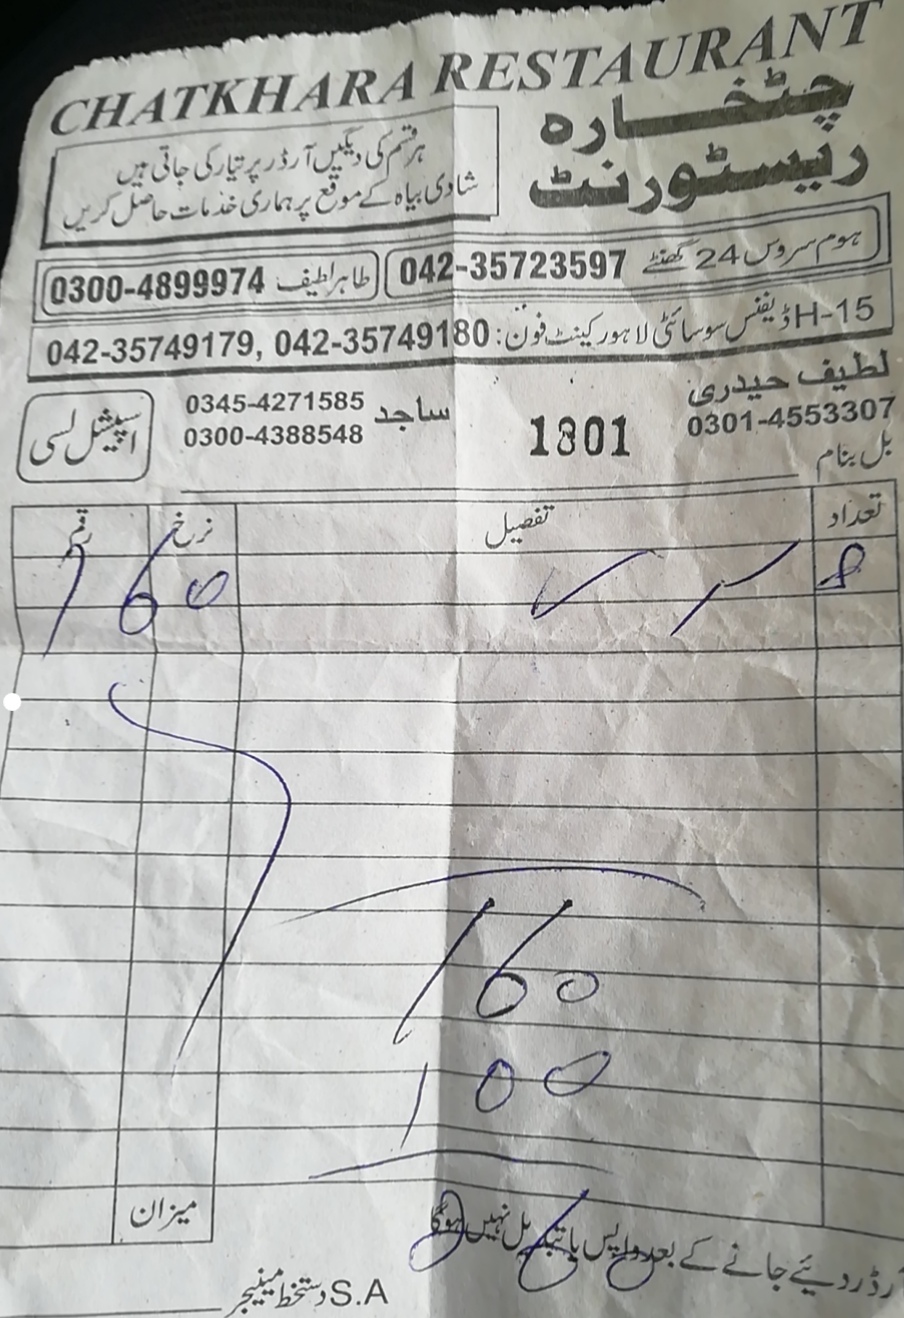 CHATKHARA RESTAURANT
چٹخارہ
ریسٹورنٹ
ہر قسم کی دیگیں آرڈر پر تیار کی جاتی ہیں
شادی بیاہ کے موقع پر ہماری خدمات حاصل کریں
ہوم سروس 24 گھنٹے 042-35723597
طاہر لطیف 0300-4899974
H-15 ڈیفنس سوسائٹی لاہور کینٹ فون: 042-35749179, 042-35749180
لطیف حیدری
0301-4553307
1801
ساجد 0345-4271585
0300-4388548
اسپیشل لسی
بل بنام
تعداد تفصیل نرخ رقم
8 160
160
100
میزان
آرڈر دیئے جانے کے بعد واپس یا تبدیل نہیں ہوگا
260
S.A دستخط مینیجر